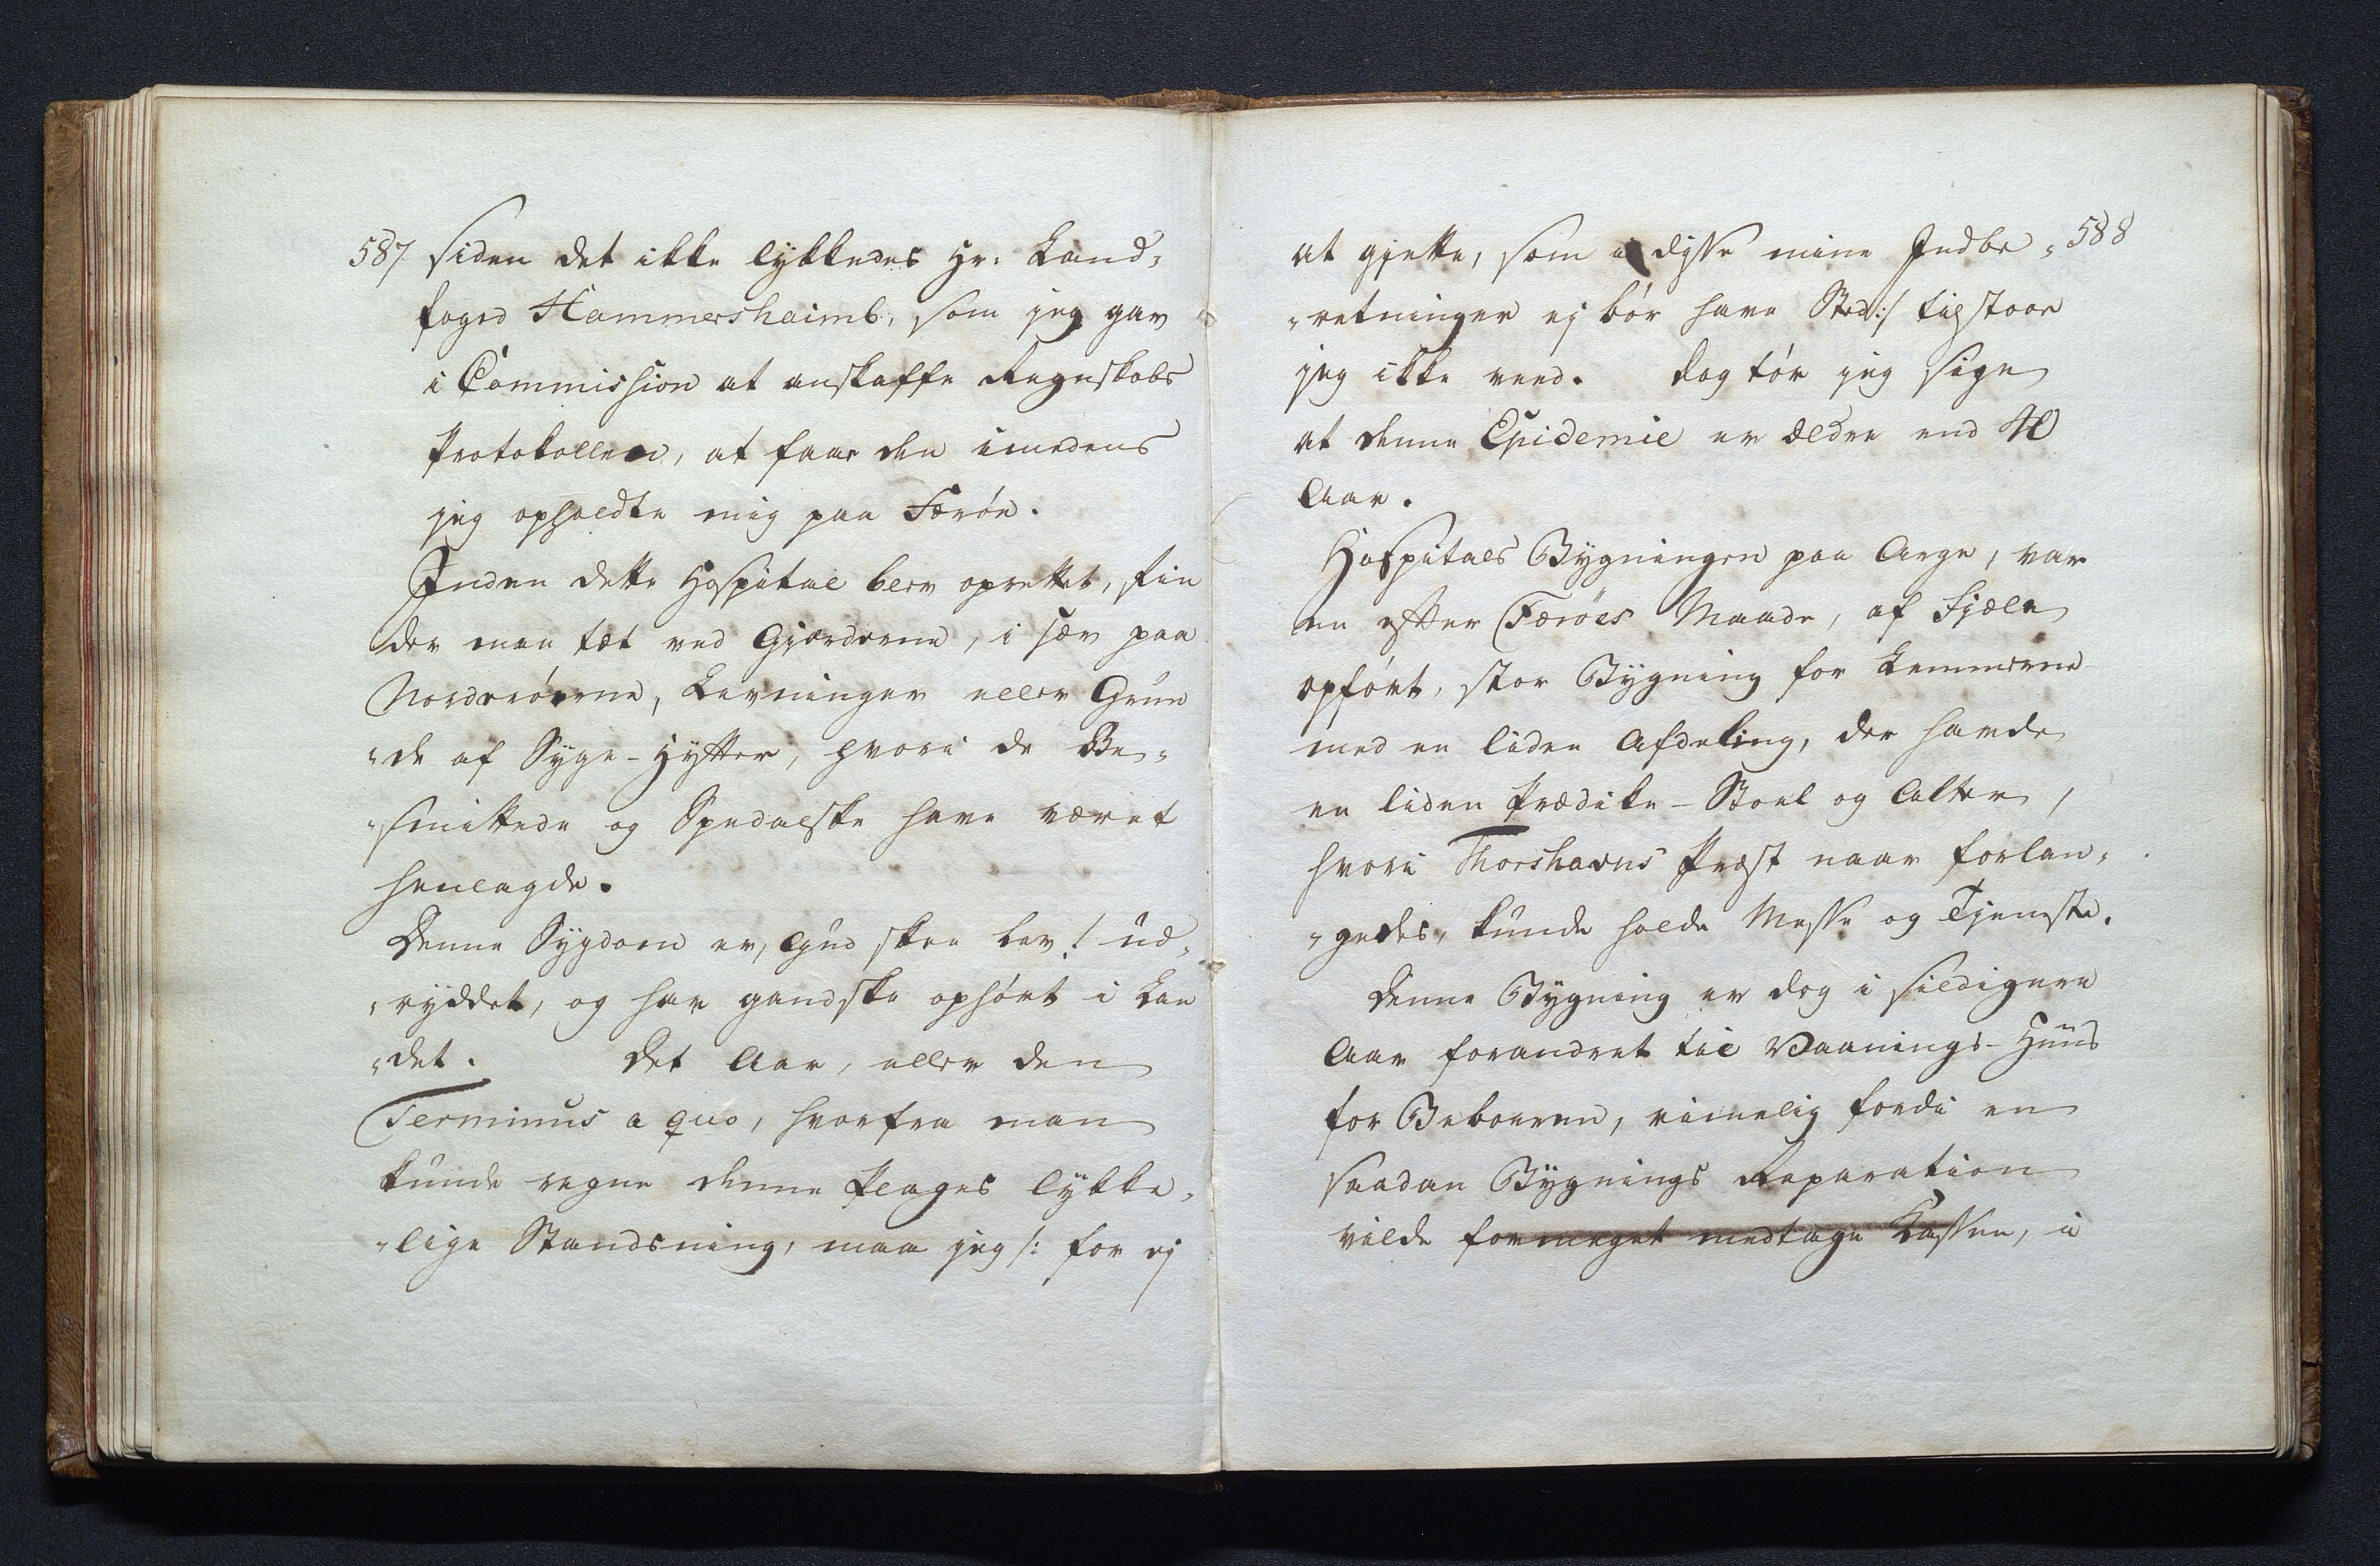 587
siden det ikke lykkedes Hr: Land-
foged Hammershaimb, som jeg gav
i Commission at anskaffe Regnskabs
Protokollen, at faae den imedens
jeg opholdte mig paa Færöe.
Inden dette Hospital blev oprettet, fin
der man tæt ved Gjærderne, i sær paa
Norderöerne, Levninger eller Grun
"de af Syge-Hytter, hvori de Be-
"smittede og Spedalske have været
henlagde.
Denne Sygdom er, Gud skee Lov! ud-
"ryddet, og har gandske ophört i Lan
"det. Det Aar, eller den
Terminus a quo, hvorfra man
kunde regne denne Plages lykke-
"lige Standsning, maa jeg /: for ej
588
at gjette, som i disse mine Indbe-
"retninger ej bör have Sted:/ tilstaae
jeg ikke veed. Dog tör jeg sige
at denne Epidemie er ældre end 40
Aar.
Hospitals Bygningen paa Arge, var
en efter Færöes Maade, af Fjæle
opfört, stor Bygning for Lemmerne
med en liden Afdeling, der havde
en liden Prædike-Stoel og Alter,
hvori Thorshavns Præst naar forlan-
"gedes, kunde holde Messe og Tjenste.
Denne Bygning er dog i sildigere
Aar forandret til Vaanings-Huus
for Beboeren, rimelig fordi en
saadan Bygnings Reparation
vilde formeget medtage Cassen, i